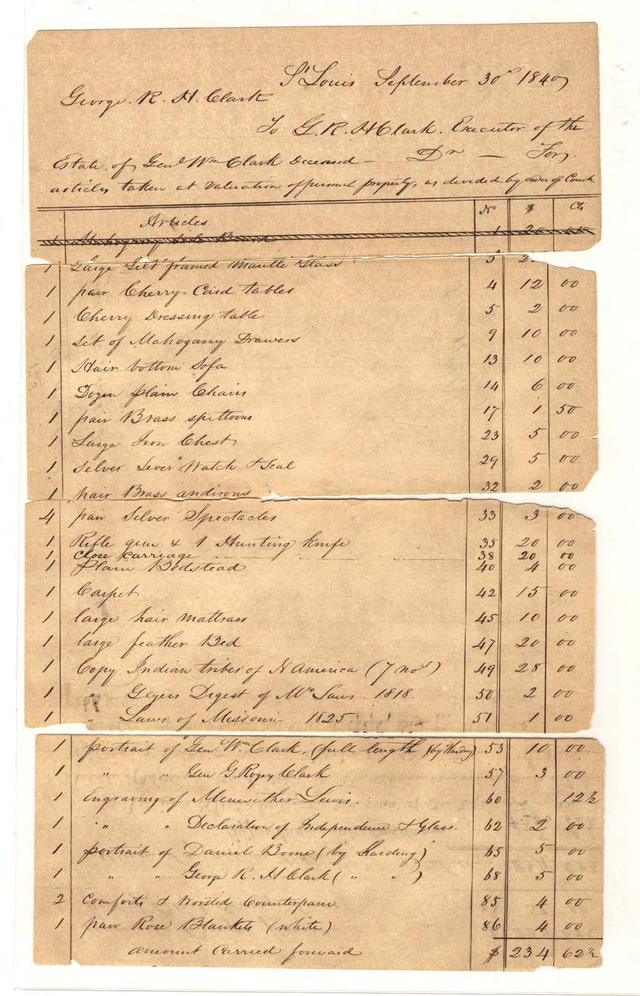 St Louis September 30th 1840
George. R. H. Clark
To G. R. H Clark. Executor of the
Estate of Genl Wm Clark Deceased — Dr — For
articles taken at valuation of personal property, as divided by order of Court
Articles No $ Cts
1 Mahogany Side Board 1 20
1 Large Gilt framed Mantle Glass 3
1 pair Cherry Card tables 4 12 00
1 Cherry Dressing table 5 2 00
1 Set of Mahogany Drawers 9 10 00
1 Hair bottom Sofa 13 10 00
1 Dozen plain Chairs 14 6 00
1 pair Brass spittoons 17 1 50
1 Large Iron Chest 23 5 00
1 Silver Lever Watch & Seal 29 5 00
1 pair Brass andirons 32 2 00
4 pair Silver Spectacles 33 3 00
1 Rifle gun & 1 Hunting knife 35 20 00
1 Close karriage 38 20 00
1 Plain Bedstead 40 4 00
1 Carpet 42 15 00
1 large hair mattrass 45 10 00
1 large feather Bed 47 20 00
1 Copy Indian tribes of N America (7 nos) 49 28 00
1 " Geyers Digest of Mo Laws. 1818. 50 2 00
1 " Laws of Missouri 1825 51 1 00
1 portrait of Gen Wm Clark, (full length (by Harding) 53 10 00
1 " " Gen G. Rogers Clark 57 3 00
1 Engraving of Meriwether Lewis. 60 12½
1 " " Declaration of Independence & Glass 62 2 00
1 portrait of Daniel Boone (by Harding) 65 5 00
1 " " George R. H Clark ( " " ) 68 5 00
2 Comforts & Worsted Counterpain 85 4 00
1 pair Rose Blankets (white) 86 4 00
amount carried forward $ 234 62½